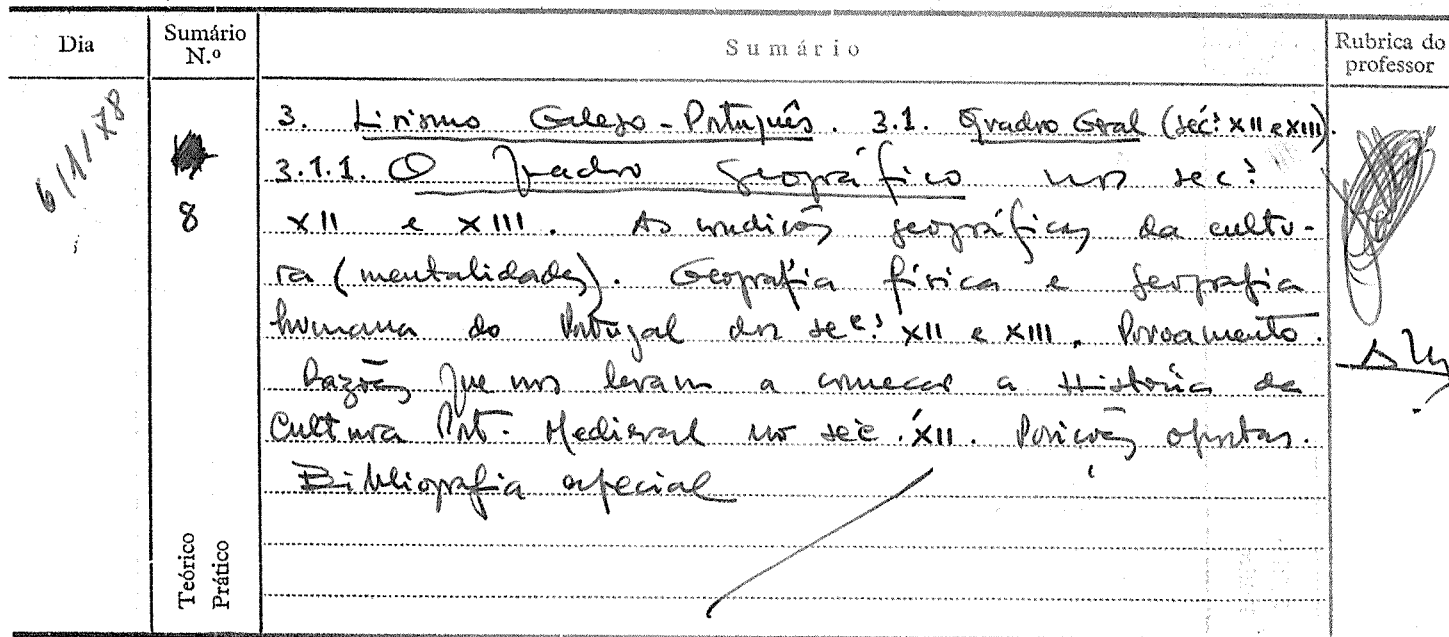 Dia
Sumário N.º
Sumário
Rubrica do professor
6/1/78
8
3. Lirismo Galego-Português. 3.1. Quadro Geral (séc.s XII e XIII).
3.1.1. O Quadro geográfico nos séc.s
XII e XIII. As condições geográficas da cultu-
ra (mentalidades). Geografia física e geografia
humana do Portugal dos séc.s XII e XIII. Povoamento.
Razões que nos levam a começar a História da
Cultura Port. Medieval no séc. XII. Posições opostas.
Bibliografia especial
Teórico
Prático